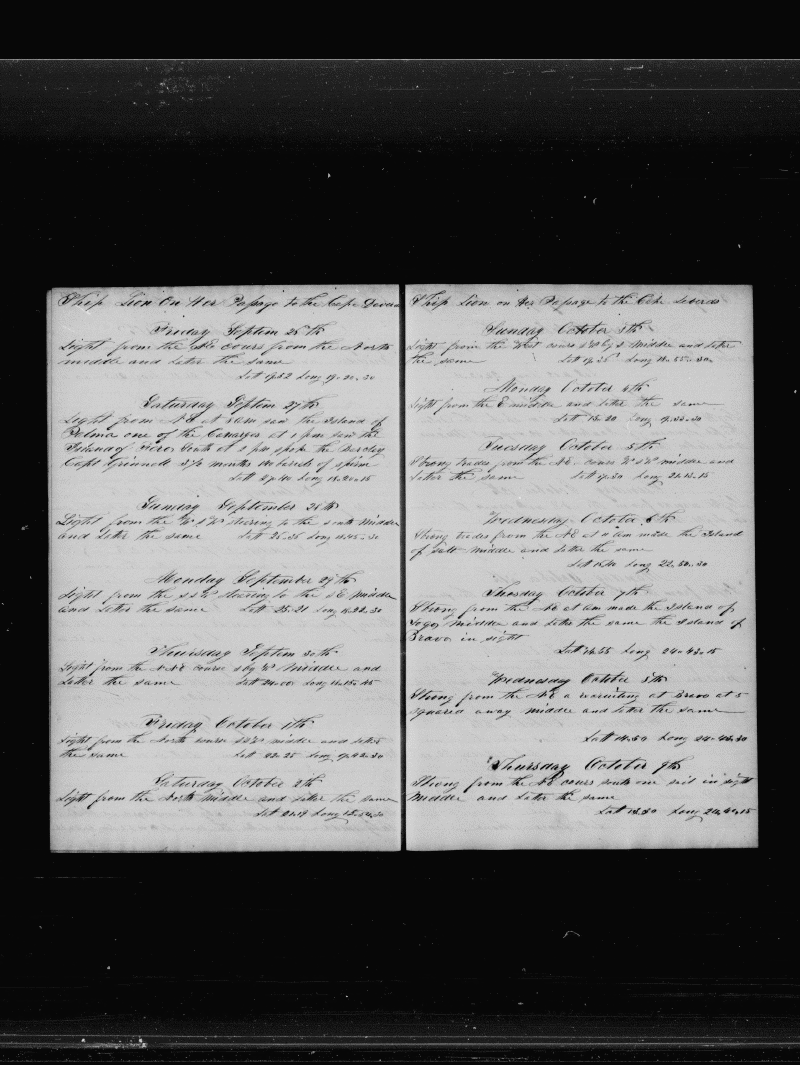 Ship Lion On Her Pasage to the Cape Devera
Friday Septem 26th
Light from the NE cours from the North
middle and later the same
Latt 19.52 Long 19.20.30
Saturday Septem 27th
Light from NE at 6 am saw the Island of
Palma one of the Canarys at 1 pm saw the
Island of Fero South at 2 pm spoke the Barclay
Capt Grinnell 3½ months no barels of sperm
Latt 27.40 Long 18.20.15
Sunday September 28th
Light from the W S W stearing to the south Middle
and later the same Latt 26.36 Long 18.45.30
Monday September 29th
Light from the S S W stearing to the S E Middle
and later the same Latt 25.21 Long 18.22.30
Thuirsday Septem 30th
Light from the NNE course S by W Middle and
Latter the same Latt 24.00 Long 18.15.45
Friday October 1th
Light from the North course SSW middle and later
the same Latt 22.25 Long 19.22.30
Saturday October 2th
Light from the North Middle and later the same
Latt 21.19 Long 18.54.30
Ship Lion on Her Pasage to the Cape Deverds
Sunday October 3th
Light from the West cours SW by S Middle and later
the same Latt 19.25 Long 18.55.30
Monday October 4th
Light from the E middle and later the same
Latt 18.20 Long 19.30.30
Tuesday October 5th
Strong trades from the NE cours W S W middle and
latter the same Latt 17.30 Long 21.13.15
Wednesday October 6th
Strong trades from the NE at 11 am made the Island
of Salt Middle and later the same
Latt 16.40 Long 22.50.30
Thosday October 7th
Strong from the NE at am made the Island of
Fogo Middle and later the same the Island of
Bravo in sight
Latt 14.55 Long 24.43.15
Wednesday October 8th
Strong from the NE a recruiting at Bravo at 5
squared away middle and later the same
Latt 14.50 Long 24.43.30
Thursday October 9th
Strong from the NE cours south one sail in sight
Middle and later the same
Latt 13.30 Long 24.40.15